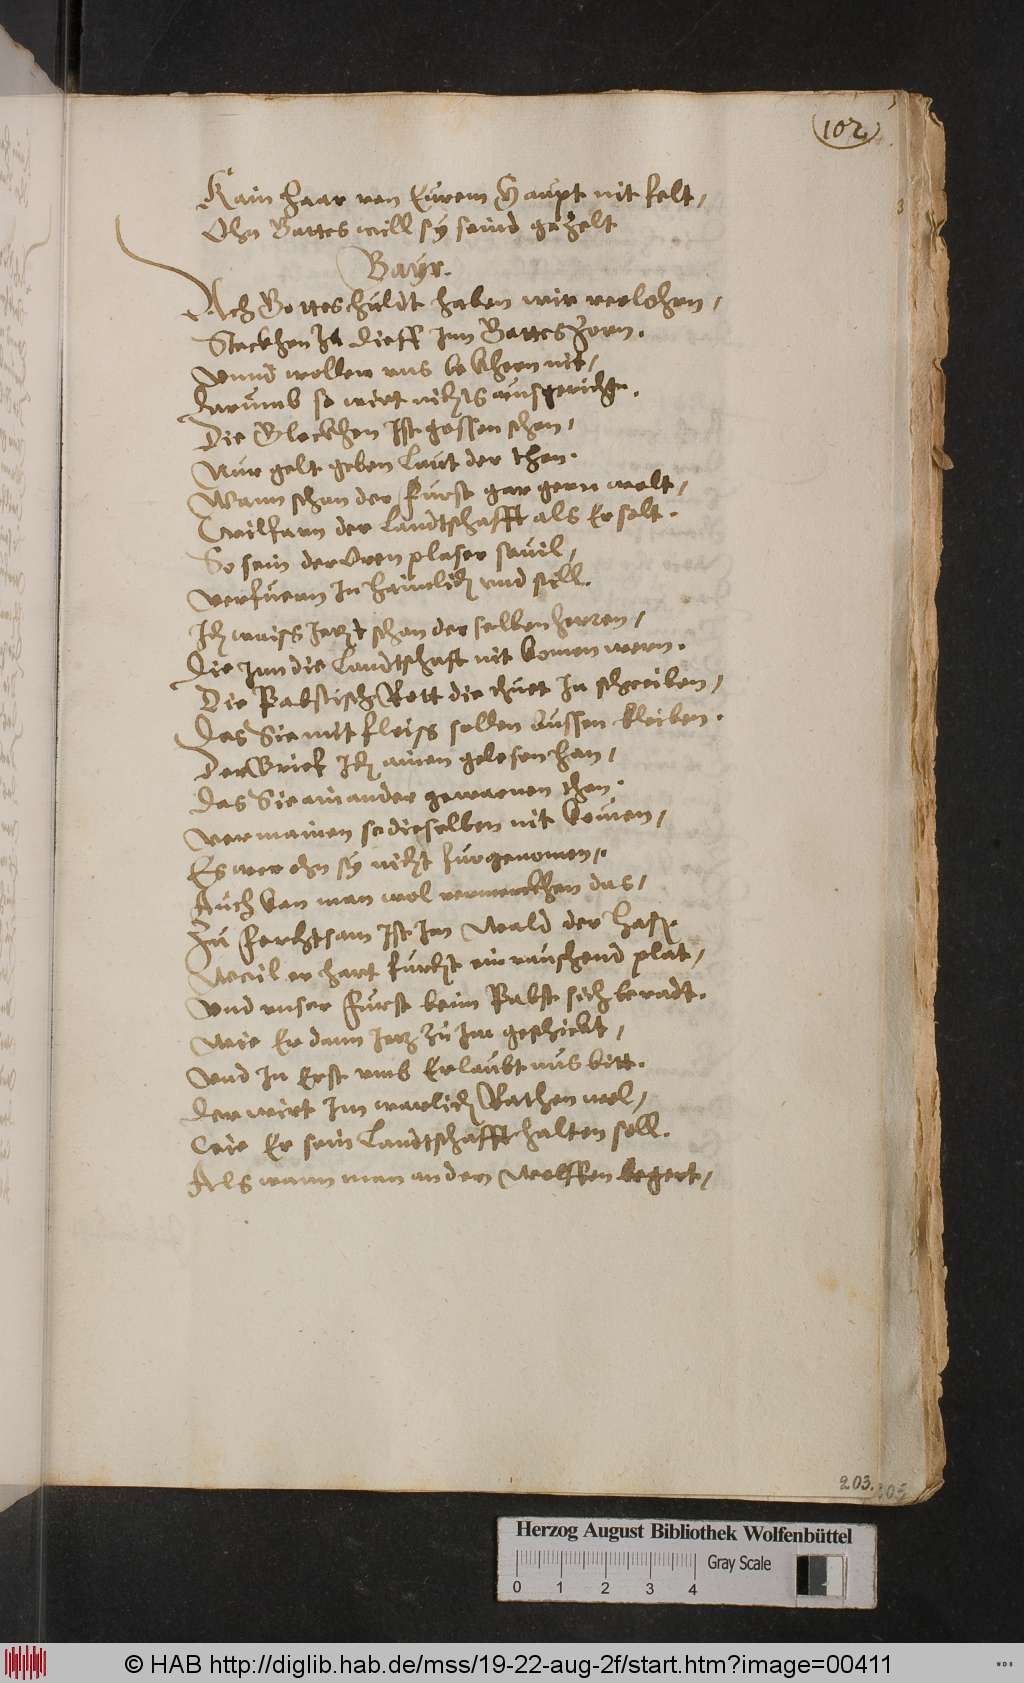 102
Kain Haar von Eurem Haupt nit felt,
Ohn Gottes will sy seind gezelt
Bayr.
Ach Gottes huldt haben wir verlohrn,
Steckhen Jz dieff Jnn Gottes Zorn.
Vnnd wollen vns bekhern nit,
Darumb so wirt nichts ausgericht.
Die Glockhen Jst gossen schon,
Nur gelt geben Laut der thon.
Wann schon der Furst gar gern wolt,
Wilfarn der Landtschafft als Er solt.
So sein der Oren plaser souil,
verfuern Jn haimlich vnd still.
Jch waiss Jetzt schon derselben herren,
Die Jnn die Landtschaft nit komen wern.
Die Pabstisch Rott die thuet Jn schreiben,
Das Sie mit fleiss sollen aussen bleiben.
Der Brief Jch ainen gelesen han,
Das Sie ainander gewarnen thon.
vermainen so dieselben nit komen,
Es wer ohn sy nicht furgenomen,
Auch kan man wol vermerckhen das,
Zu forchtsam Jst Jm Wald der Hass.
Weil er hart furcht ein rauschend plat,
Vnd vnser Furst beim Pabst sich beradt.
Wie Er dann Jetz zu Jm geschickt,
Vnd Jn Erst vmb Erlaubtnus bitt.
Der wirt Jm warlich Rathen wol,
Wie Er sein Landtschafft halten soll.
Als wann man an den Wolffen begert,
203.
Herzog August Bibliothek Wolfenbüttel
Gray Scale
0 1 2 3 4
© HAB http://diglib.hab.de/mss/19-22-aug-2f/start.htm?image=00411